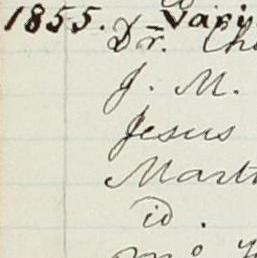 1855. Vari
Dr. Ch
J. M.
Jesus
Mart
id.